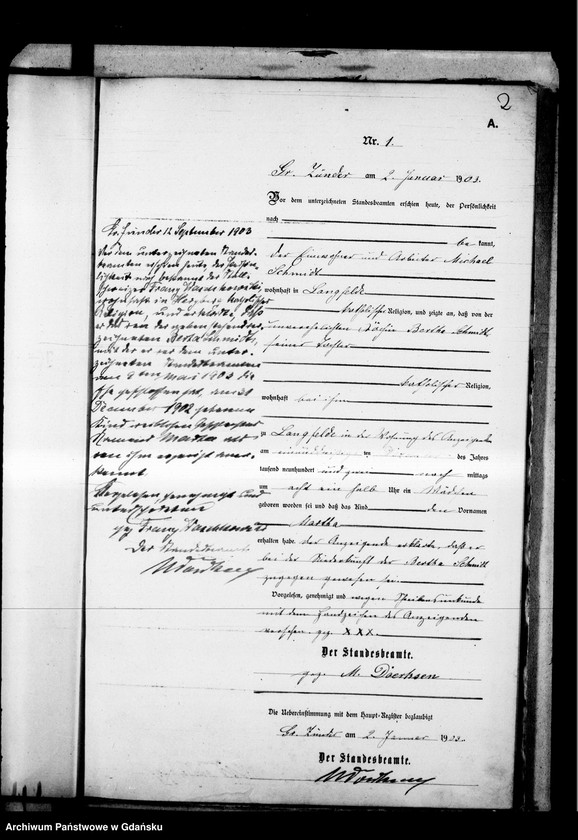 2
A.
Nr. 1.
Gr. Zünder am 2. Januar 1903.
Vor dem unterzeichneten Standesbeamten erschien heute, der Persönlichkeit
nach
be kannt,
der Einwohner und Arbeiter Michael
Schmidt
wohnhaft in Langfelde
katholischer Religion, und zeigte an, daß von der
unverehelichten Bertha Schmidt
seiner Tochter
katholischer Religion,
wohnhaft bei ihm
zu Langfelde in der Wohnung des Anzeigenden
am des Jahres
tausend neunhundert und zwei nach mittags
um acht ein halb Uhr ein Mädchen
geboren worden sei und daß das Kind den Vornamen
Martha
erhalten habe. Der Anzeigende erklärte, daß er
bei der Niederkunft der Bertha Schmidt
zugegen gewesen sei.
Vorgelesen, genehmigt und wegen Schreibensunkunde
mit dem Handzeichen des Anzeigenden
versehen. gez. XXX.
Der Standesbeamte.
gez. M. Doerksen
Die Uebereinstimmung mit dem Haupt-Register beglaubigt
Gr. Zünder am 2. Januar 1903.
Der Standesbeamte.
Gr. Zünder 12 September 1903
Vor dem unterzeichneten Standes-
beamten erschien heute, der Persön-
lichkeit nach bekannt, der
Franz
wohnhaft in katholischer
Religion, und erklärte, daß
er der von der nebenstehend
zeichneten Bertha Schmidt,
mit der er vor dem unter-
zeichneten Standesbeamten
am Mai 1903 die
Ehe geschlossen hat, am
December 1902 geborenen
Kind weiblichen Geschlechts
Namens Martha als
von ihm erzeugt aner-
kennt
Vorgelesen genehmigt und
unterschrieben
gez Franz
Der Standesbeamte
Archiwum Państwowe w Gdańsku